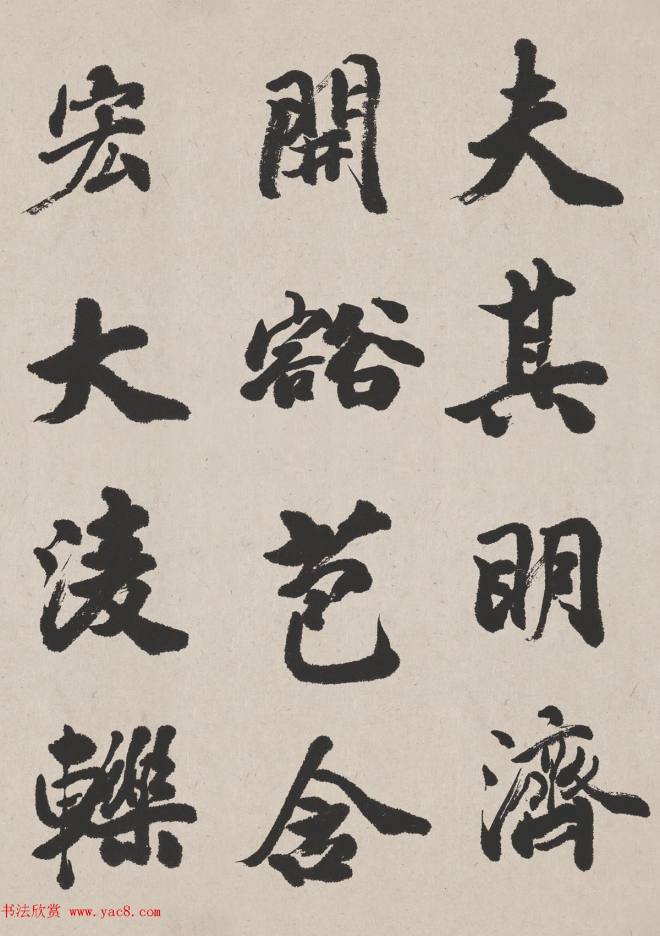 夫其明濟
開豁苞含
宏大淩轢
书法欣赏 www.yac8.com